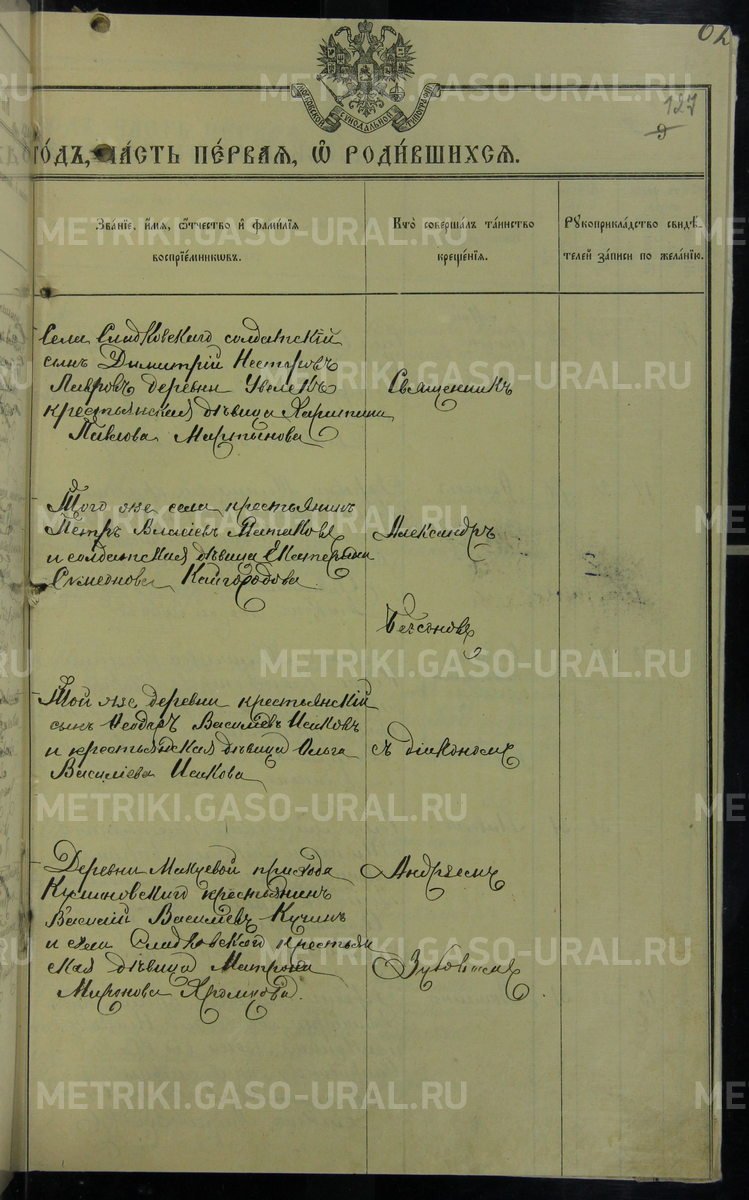 127
МОСКОВСКОЙ СѶНОДАЛЬНОЙ ТИПОГРАФІИ
ГО́ДЪ, ЧА́СТЬ ПЕ́РВАЯ, Ѽ РОДИ́ВШИХСЯ.
Зва́ніе, и́мя, ѻ҆́тчество и҆ фами́лія
воспріе́мникѡвъ.
Кто̀ соверша́лъ та́инство
креще́нія.
Рꙋкоприкла́дство свидѣ́-
телей за́писи по жела́нію.
Села Сладковскаго солдатскій
сынъ Димитрій Несторовъ
Лавровъ деревни
крестьянская дѣвица Харитина
Павлова Мартынова
Священникъ
Того же села крестьянинъ
Петръ Власіевъ
и солдатская дѣвица Екатерина
Симеонова Кайгородова
Александръ
Бессоновъ
Той же деревни крестьянскій
сынъ Ѳеодоръ Василіевъ Исаковъ
и крестьянская дѣвица Ольга
Василіева Исакова
съ діакономъ
Деревни Макуевой прихода
крестьянинъ
Василій Василіевъ Кучинъ
и села Сладковскаго крестьян
ская дѣвица Матрона
Миронова Хромцова.
Андреемъ
Зубовымъ
METRIKI.GASO-URAL.RU